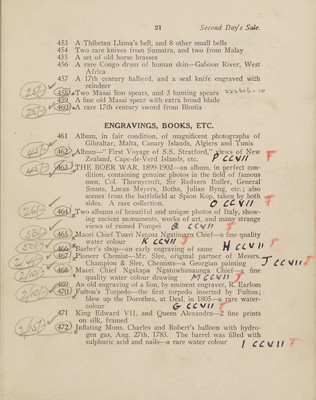 21 Second Day's Sale.
453 A Thibetan Llama's bell, and 8 other small bells
454 Two rare knives from Sumatra, and two from Malay
455 A set of old horse brasses
456 A rare Congo drum of human skin—Gaboon River, West
Africa
457 A 17th century halberd, and a seal knife engraved with
reindeer
458 Two Massi lion spears, and 3 hunting spears
459 A fine old Massai spear with extra broad blade
460 A rare 17th century sword from Bhutia
ENGRAVINGS, BOOKS, ETC.
461 Album, in fair condition, of magnificent photographs of
Gibraltar, Malta, Canary Islands, Algiers and Tunis
462 Album—" First Voyage of S.S. Stratford," views of New
Zealand, Cape-de-Verd Islands, etc. P CCVII T
463 THE BOER WAR, 1899-1902—an album, in perfect con-
dition, containing genuine photos in the field of famous
men, Col. Thorneycroft, Sir Redvers Buller, General
Smuts, Lucas Meyers, Botha, Julian Byng, etc.; also
scenes from the battlefield at Spion Kop, taken by both
sides. A rare collection. O CCVII T
464 Two albums of beautiful and unique photos of Italy, show-
ing ancient monuments, works of art, and many strange
views of ruined Pompeii Q CCVII T
465 Maori Chief Tuari Netana Ngatimata Chief—a fine quality
water colour K CCVII T
466 Barber's shop—an early engraving of same H CCVII T
467 Pioneer Chemist—Mr. Slee, original partner of Messrs.
Champion & Slee, Chemists—a Georgian painting J CCVII T
468 Maori Chief Ngakapa Ngatuwhanaunga Chief—a fine
quality water colour drawing M CCVII T
469 An old engraving of a lion, by eminent engraver, R. Earlom
470 Fulton's Torpedo—the first torpedo inserted by Fulton;
blew up the Dorothea, at Deal, in 1805—a rare water-
colour G CCVII T
471 King Edward VII. and Queen Alexandra—2 fine prints
on silk, framed
472 Inflating Mons. Charles and Robert's balloon with hydro-
gen gas, Aug. 27th, 1783. The barrel was filled with
sulphuric acid and nails—a rare water colour I CCVII T